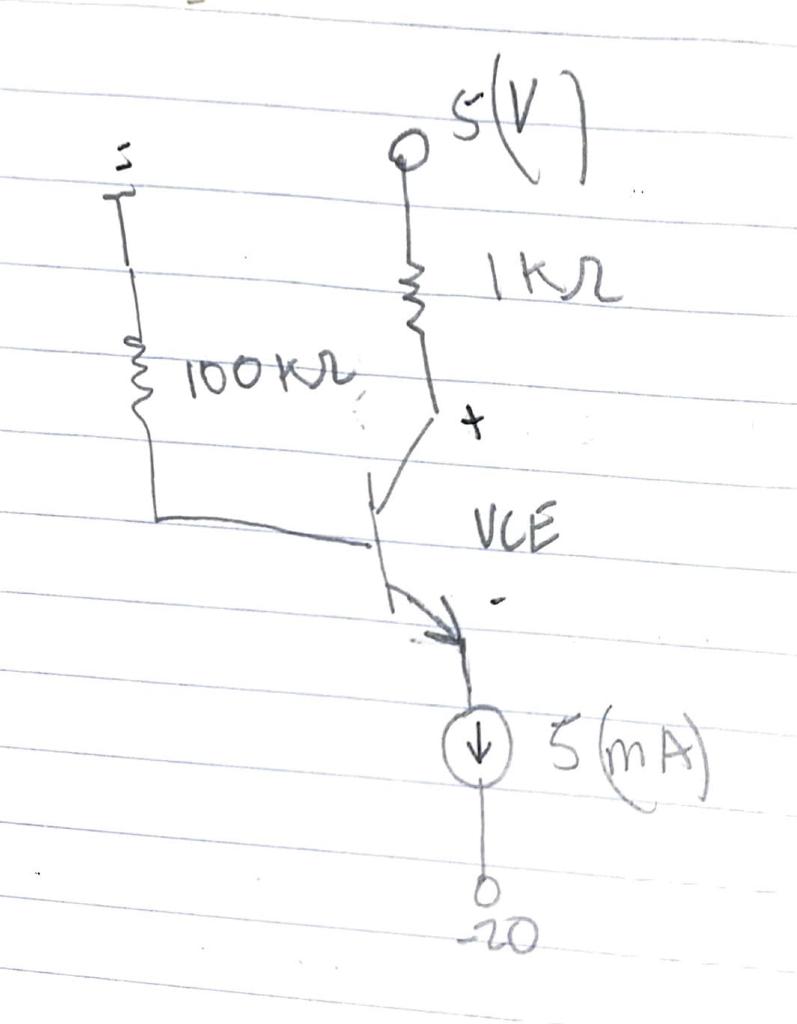 5(V)
1KΩ
100KΩ
+
VCE
-
5(mA)
-20